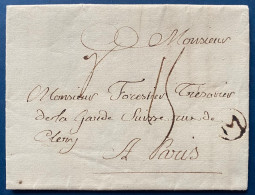 Monsieur
Monsieur Forestier Trésorier
de la Garde Suisse rue de
Clery
A Paris
15